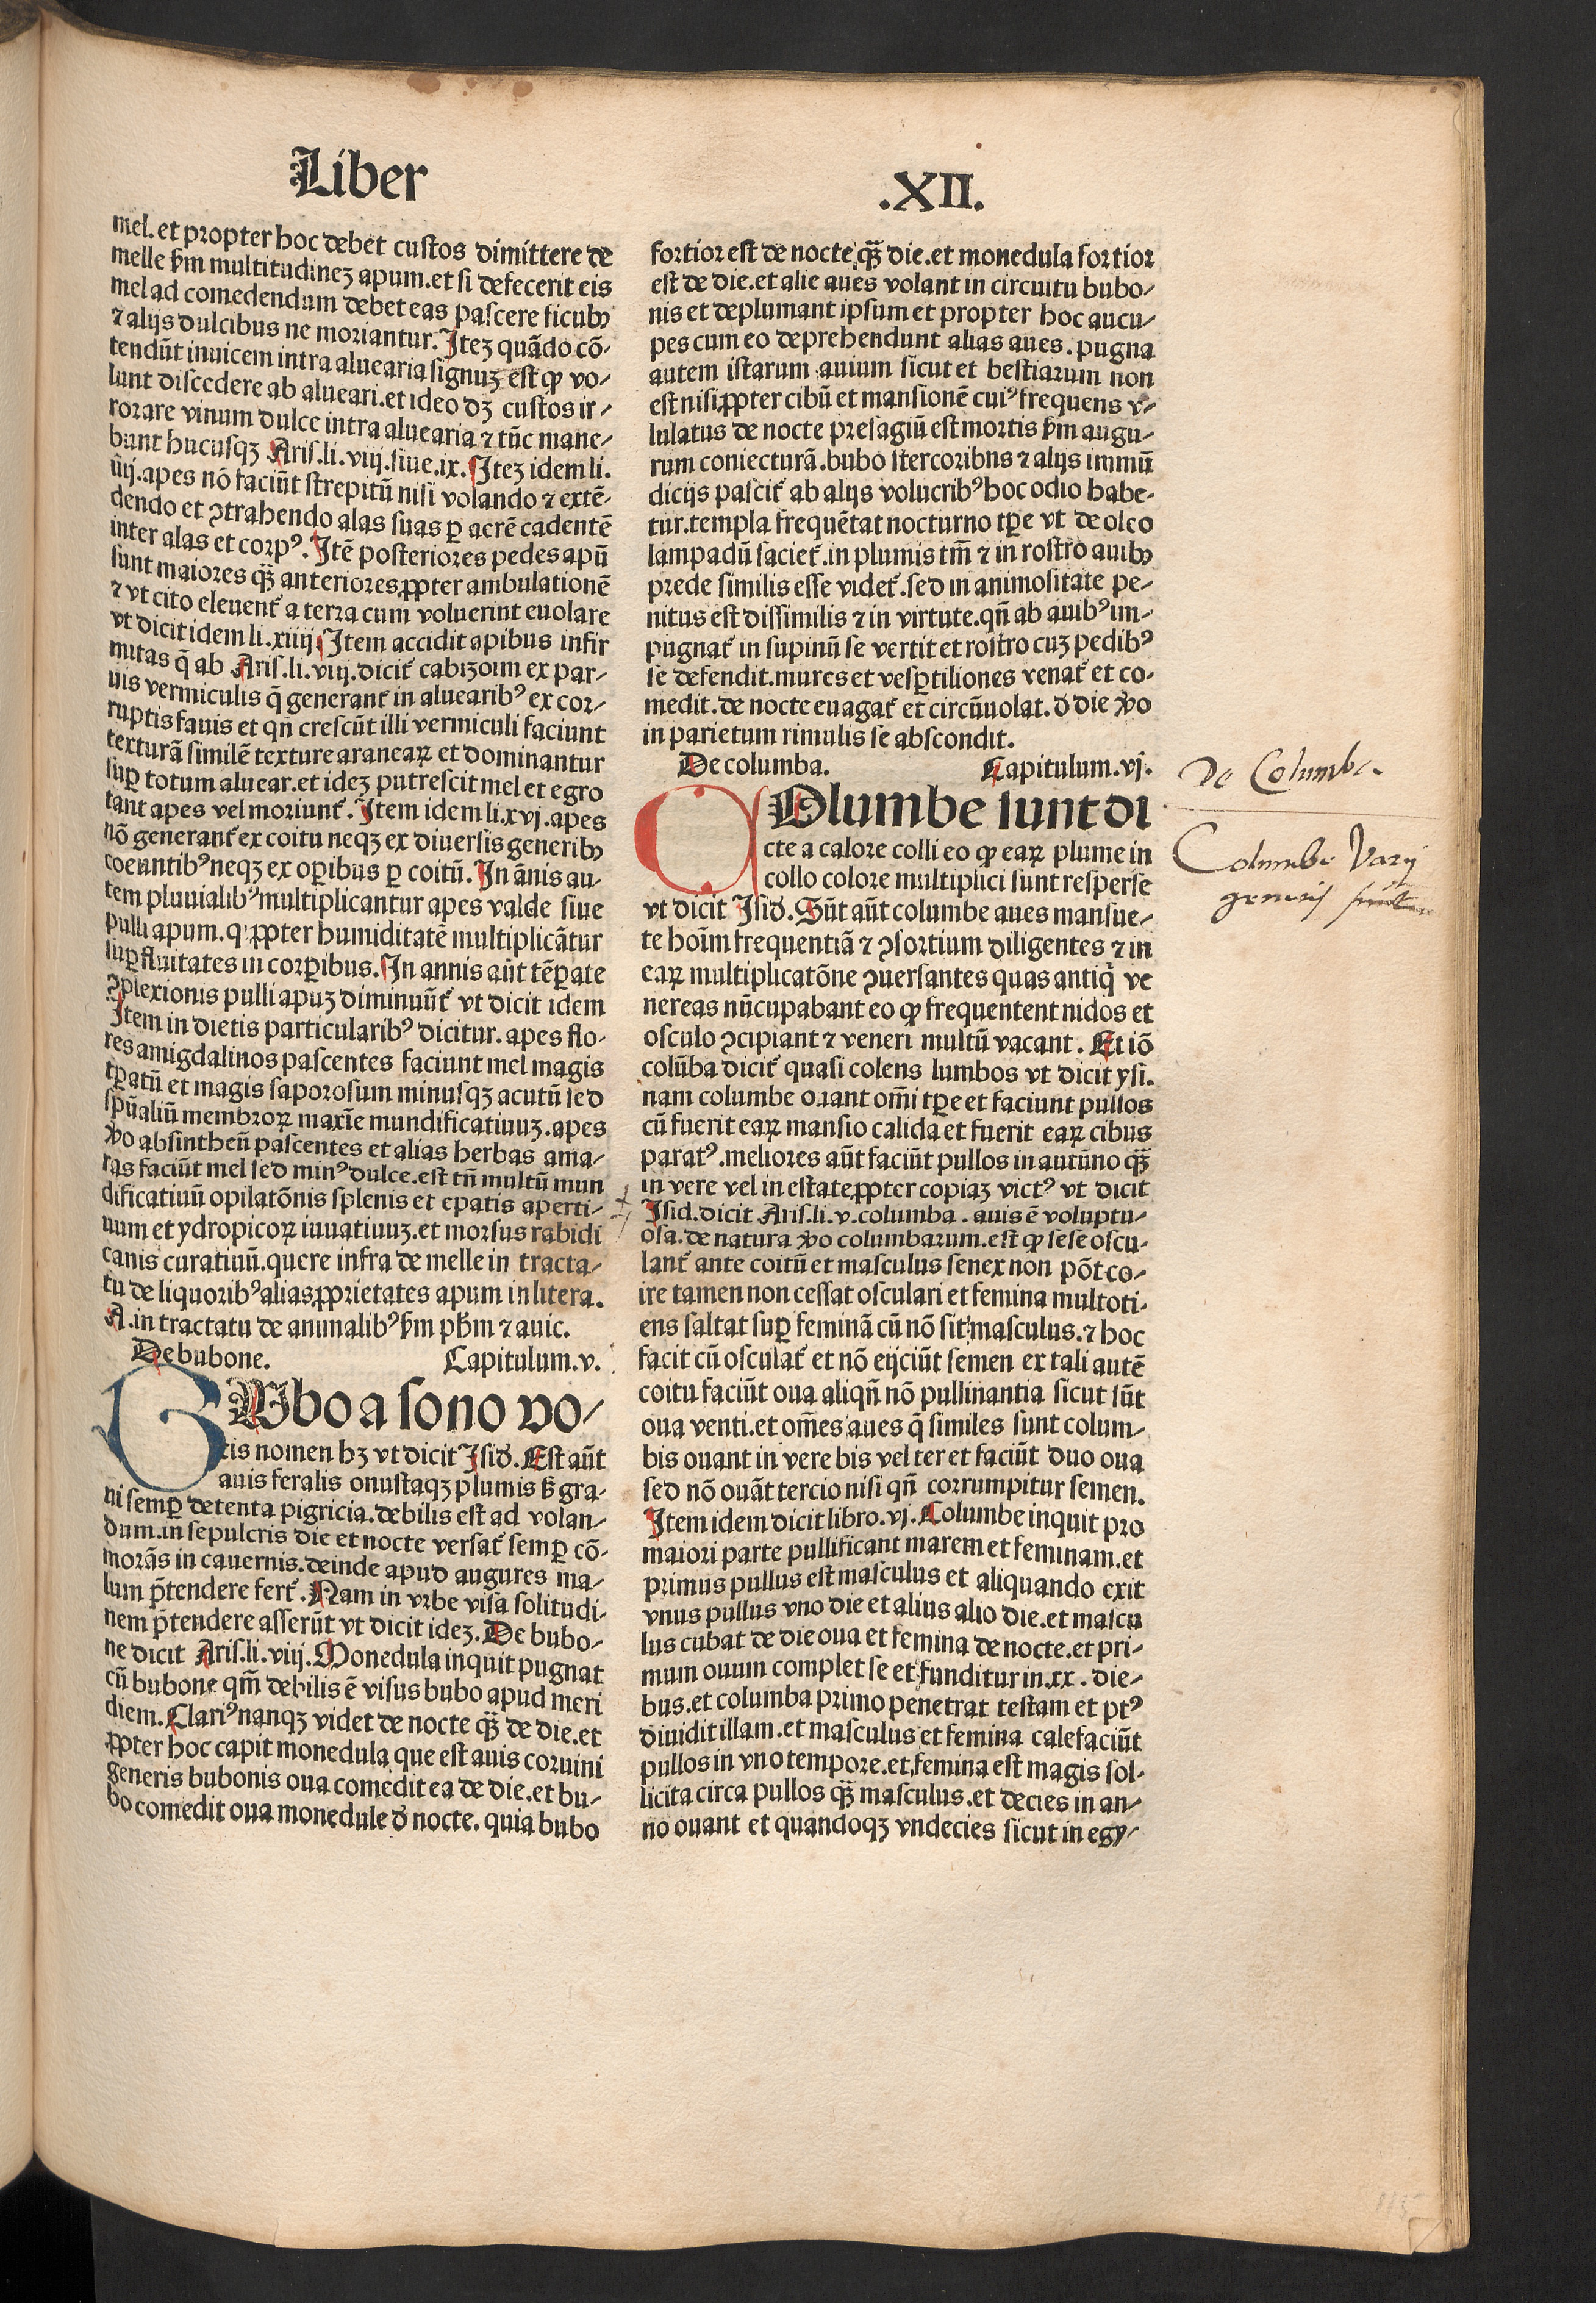 Liber
mel. et propter hoc debet custos dimittere de
melle ẜm multitudineʒ apum. et si defecerit eis
mel ad comedendum debet eas pascere ficubꝫ
⁊ alijs dulcibus ne moriantur. Iteʒ quādo cō-
tendūt inuicem intra aluearia signuʒ est ꝙ vo-
lunt discedere ab alueari. et ideo dʒ custos ir-
rorare vinum dulce intra aluearia ⁊ tūc mane-
bunt hucusqʒ Aris. li. viij. siue. ix. Iteʒ idem li.
iiij. apes nō faciūt strepitū nisi volando ⁊ extē-
dendo et ꝯtrahendo alas suas ꝑ aerē cadentē
inter alas et corpꝰ. Itē posteriores pedes apū
sunt maiores qȝ̄ anteriores ꝓpter ambulationē
⁊ vt cito eleuent᷑ a terra cum voluerint euolare
vt dicit idem li. xiiij. Item accidit apibus infir
mitas q̄ ab Aris. li. viij. dicit᷑ cabizoim ex par-
uis vermiculis q̄ generant᷑ in aluearibꝰ ex cor-
ruptis fauis et qn̄ crescūt illi vermiculi faciunt
texturā similē texture araneaꝝ et dominantur
suꝑ totum aluear. et ideʒ putrescit mel et egro
tant apes vel moriunt᷑. Item idem li. xvj. apes
nō generant᷑ ex coitu neqʒ ex diuersis generibꝫ
coeuntibꝰ neqʒ ex oꝑibus ꝑ coitū. In ānis au-
tem pluuialibꝰ multiplicantur apes valde siue
pulli apum. qꝫ ꝓpter humiditatē multiplicātur
suꝑfluitates in corꝑibus. In annis aūt tēꝑate
ꝯplexionis pulli apuʒ diminuūt᷑ vt dicit idem
Item in dietis particularibꝰ dicitur. apes flo-
res amigdalinos pascentes faciunt mel magis
tꝑatū et magis saporosum minusqʒ acutū sed
spūaliū membroꝝ maxīe mundificatiuuʒ. apes
ꝟo absintheū pascentes et alias herbas ama-
ras faciūt mel sed minꝰ dulce. est tn̄ multū mun
dificatiuū opilatōnis splenis et epatis aperti-
uum et ydropicoꝝ iuuatiuuʒ. et morsus rabidi
canis curatiuū. quere infra de melle in tracta-
tu de liquoribꝰ alias ꝓprietates apum in litera.
A. in tractatu de animalibꝰ ẜm pħm ⁊ auic.
De bubone. Capitulum. v.
BVbo a sono vo-
cis nomen hʒ vt dicit Isid. Est aūt
auis feralis onustaqʒ plumis ẜ gra-
ui semꝑ detenta pigricia. debilis est ad volan-
dum. in sepulcris die et nocte versat᷑ semꝑ cō-
morās in cauernis. deinde apud augures ma-
lum p̄tendere fert᷑. Nam in vrbe visa solitudi-
nem p̄tendere asserūt vt dicit ideʒ. De bubo-
ne dicit Aris. li. viij. Monedula inquit pugnat
cū bubone qm̄ debilis ē visus bubo apud meri
diem. Clariꝰ nanqʒ videt de nocte qȝ̄ de die. et
ꝓpter hoc capit monedula que est auis coruini
generis bubonis oua comedit ea de die. et bu-
bo comedit oua monedule ḋ nocte. quia bubo
.XII.
fortior est de nocte qȝ̄ die. et monedula fortior
est de die. et alie aues volant in circuitu bubo-
nis et deplumant ipsum et propter hoc aucu-
pes cum eo deprehendunt alias aues. pugna
autem istarum auium sicut et bestiarum non
est nisi ꝓpter cibū et mansionē cuiꝰ frequens v-
lulatus de nocte presagiū est mortis ẜm augu-
rum coniecturā. bubo stercoribns ⁊ alijs immū
dicijs pascit᷑ ab alijs volucribꝰ hoc odio habe-
tur. templa frequētat nocturno tꝑe vt de oleo
lampadū saciet᷑. in plumis tm̄ ⁊ in rostro auibꝫ
prede similis esse videt᷑. sed in animositate pe-
nitus est dissimilis ⁊ in virtute. qn̄ ab auibꝰ im-
pugnat᷑ in supinū se vertit et rostro cuʒ pedibꝰ
se defendit. mures et vesꝑtiliones venat᷑ et co-
medit. de nocte euagat᷑ et circūuolat. ḋ die ꝟo
in parietum rimulis se abscondit.
De columba. Capitulum. vj.
COlumbe sunt di
cte a calore colli eo ꝙ eaꝝ plume in
collo colore multiplici sunt resperse
vt dicit Isid. Sūt aūt columbe aues mansue-
te hoīm frequentiā ⁊ ꝯsortium diligentes ⁊ in
eaꝝ multiplicatōne ꝯuersantes quas antiqͥ ve
nereas nūcupabant eo ꝙ frequentent nidos et
osculo ꝯcipiant ⁊ veneri multū vacant. Et iō
colūba dicit᷑ quasi colens lumbos vt dicit ysi.
nam columbe ouant om̄i tꝑe et faciunt pullos
cū fuerit eaꝝ mansio calida et fuerit eaꝝ cibus
paratꝰ. meliores aūt faciūt pullos in autūno qȝ̄
in vere vel in estate ꝓpter copiaʒ victꝰ vt dicit
Isid. dicit Aris. li. v. columba. auis ē voluptu-
osa. de natura ꝟo columbarum. est ꝙ sese oscu-
lant᷑ ante coitū et masculus senex non pōt co-
ire tamen non cessat osculari et femina multoti-
ens saltat suꝑ feminā cū nō sit masculus. ⁊ hoc
facit cū osculat᷑ et nō eijciūt semen ex tali autē
coitu faciūt oua aliqn̄ nō pullinantia sicut sūt
oua venti. et om̄es aues q̄ similes sunt colum-
bis ouant in vere bis vel ter et faciūt duo oua
sed nō ouāt tercio nisi qn̄ corrumpitur semen.
Item idem dicit libro. vj. Columbe inquit pro
maiori parte pullificant marem et feminam. et
primus pullus est masculus et aliquando exit
vnus pullus vno die et alius alio die. et mascu
lus cubat de die oua et femina de nocte. et pri-
mum ouum complet se et funditur in. xx. die-
bus. et columba primo penetrat testam et ptꝰ
diuidit illam. et masculus et femina calefaciūt
pullos in vno tempore. et femina est magis sol-
licita circa pullos qȝ̄ masculus. et decies in an-
no ouant et quandoqʒ vndecies sicut in egy-
De Columba.
Columbe Varij
generis sunt